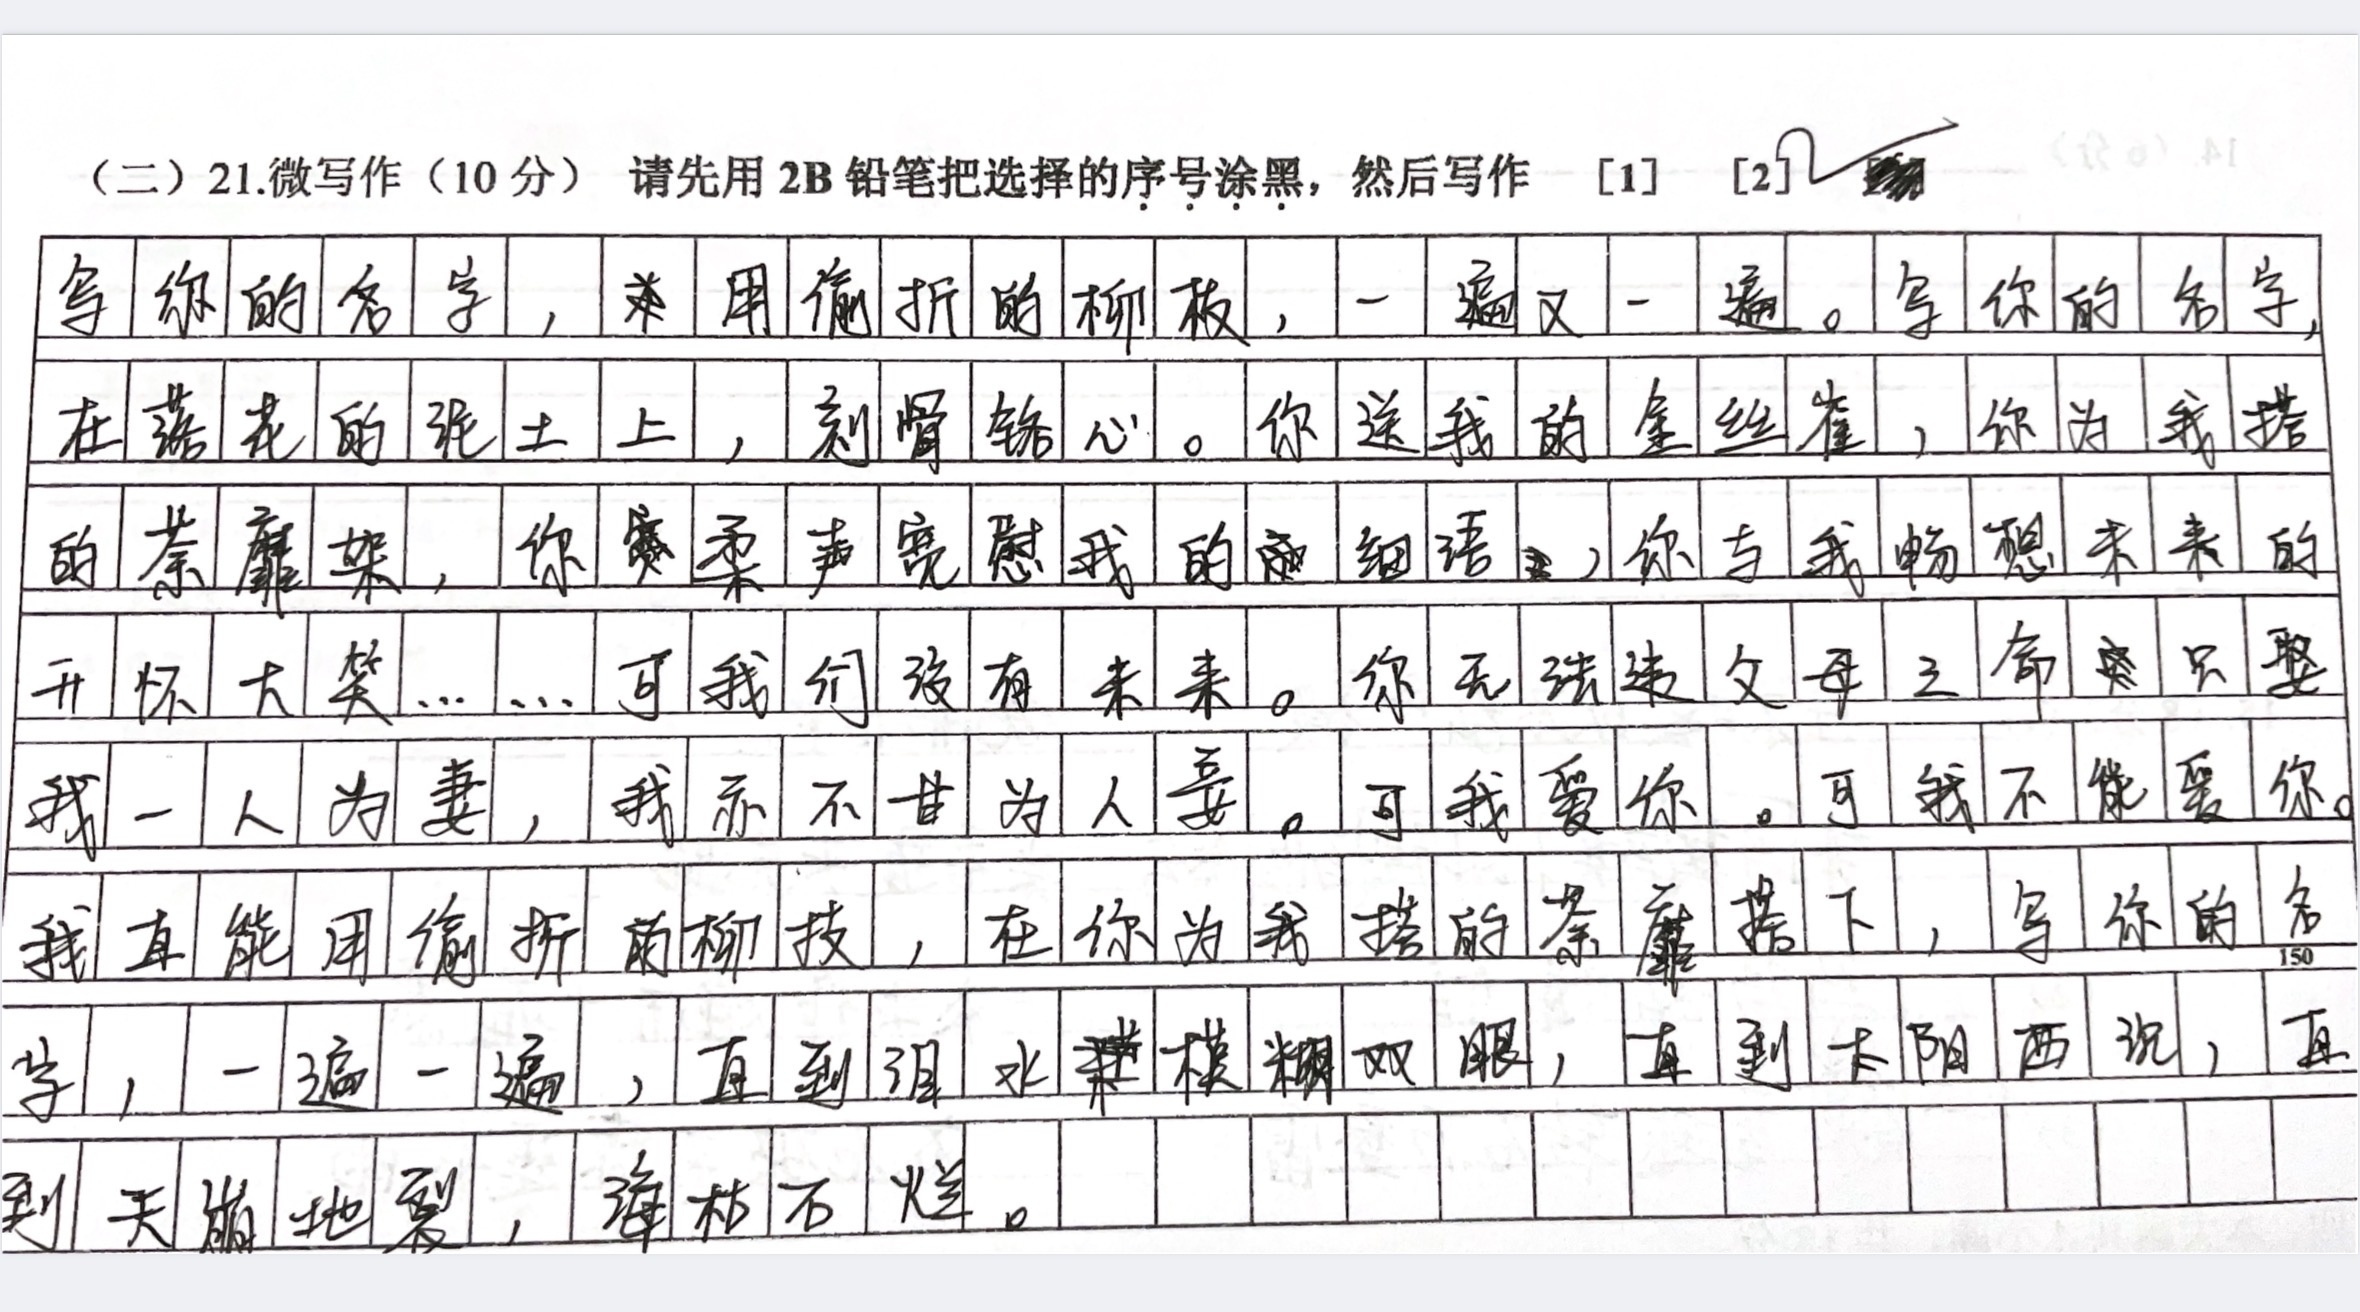 (二)21.微写作(10 分) 请先用 2B 铅笔把选择的序号涂黑,然后写作 [1] [2]
写你的名字,用偷折的柳枝,一遍又一遍。写你的名字,
在落花的泥土上,刻骨铭心。你送我的金丝雀,你为我搭
的荼蘼架,你柔声宽慰我的细语,你与我畅想未来的
开怀大笑……可我们没有未来。你无法违父母之命只娶
我一人为妻,我亦不甘为人妾。可我爱你。可我不能爱你。
我直能用偷折的柳技,在你为我搭的荼蘼搭下,写你的名
150
字,一遍一遍,直到泪水模糊双眼,直到太阳西沉,直
到天崩地裂,海枯石烂。